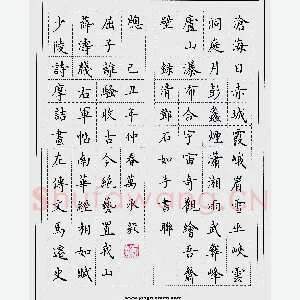 滄海日赤城霞峨眉雪巫峽雲
洞庭月彭蠡煙瀟湘雨武彝峰
廬山瀑布合宇宙奇觀繪吾齋
壁 錄清鄧石如書聯
牕 己丑年仲春萬永
屈子離騷收古今絕藝置我山
薛濤牋右軍帖南華經相如賦
少陵詩摩詰畫左傳文馬遷史
Shufawang.CN